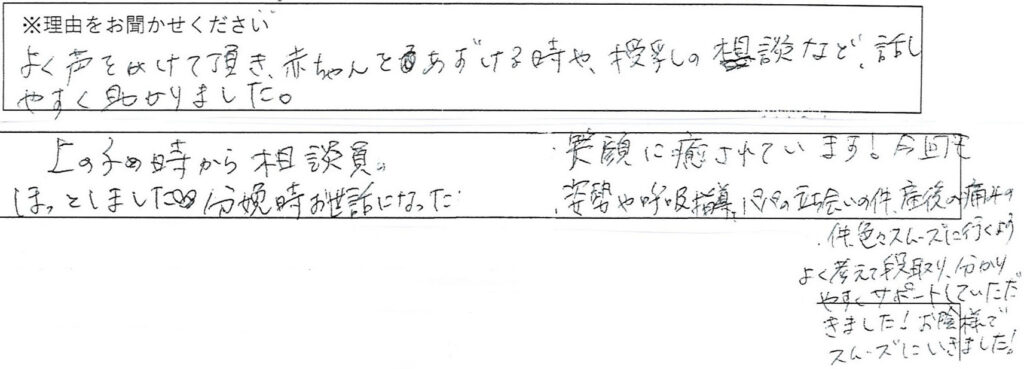 ※理由をお聞かせください
よく声をかけて頂き、赤ちゃんをあずける時や、授乳の相談など、話し
やすく助かりました。
上の子の時から相談員。
ほっとしました 分娩時お世話になった
・笑顔に癒されています！今回も
・姿勢や呼吸指導、パパの立ち会いの件、産後の痛みの
・件、色々スムーズに行くよう
よく考えて段取り、分かり
やすくサポートしていただ
きました！お陰様で
スムーズにいきました！